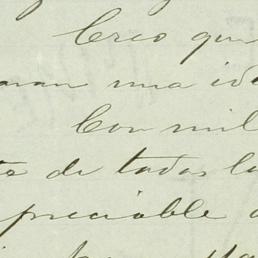 Creo que
una ide
Con mil
de todas la
preciable